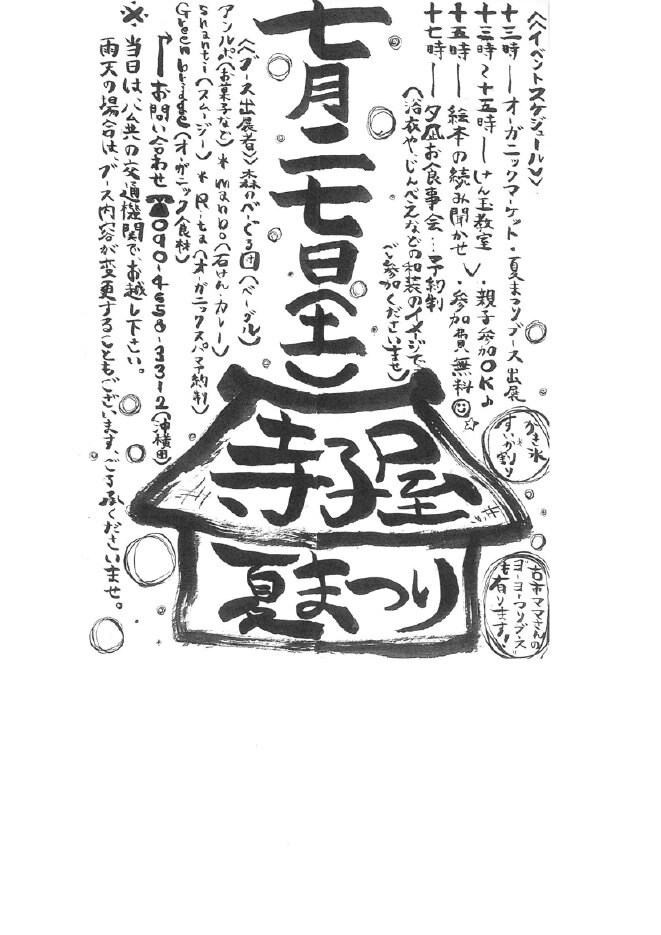 《イベントスケジュール》
十三時ーオーガニックマーケット・夏まつりブース出展
十三時〜十五時ーけん玉教室
十五時ー絵本の読み聞かせ
・親子参加OK♪
・参加費無料
十七時ー夕凪お食事会…予約制
(浴衣や、じんべえなどの和装のイメージで、
ご参加くださいませ)
かき氷
すいか割り
古市ママさんの
"ヨーヨーつりブース"
も有ります!
七月二七日(土)
寺子屋
夏まつり
《ブース出展者》森のべーぐる団(ベーグル)
アンルポ(お菓子など)*mano(石けん・カレー)
shanti(スムージー)*R-ta(オーガニックスパ予約制)
Greenbridge(オーガニック食材)
お問い合わせ☎090-4658-3312(沖横田)
※当日は、公共の交通機関でお越し下さい。
雨天の場合は、ブース内容が変更することもございます、ご了承くださいませ。